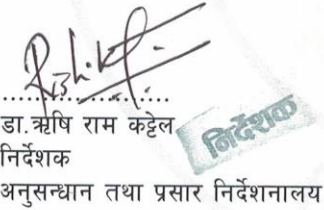 डा.ऋषि राम कट्टेल
निर्देशक
निर्देशक
अनुसन्धान तथा प्रसार निर्देशनालय